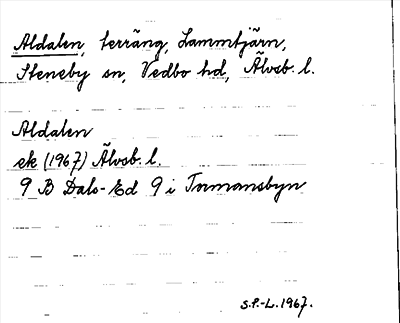 Aldalen, terräng, Lammtjärn,
Steneby sn, Vedbo hd, Älvsb. l.
Aldalen
ek (1967) Älvsb. l.
9 B Dals-Ed 9 i Tormansbyn
S.P.-L. 1967.